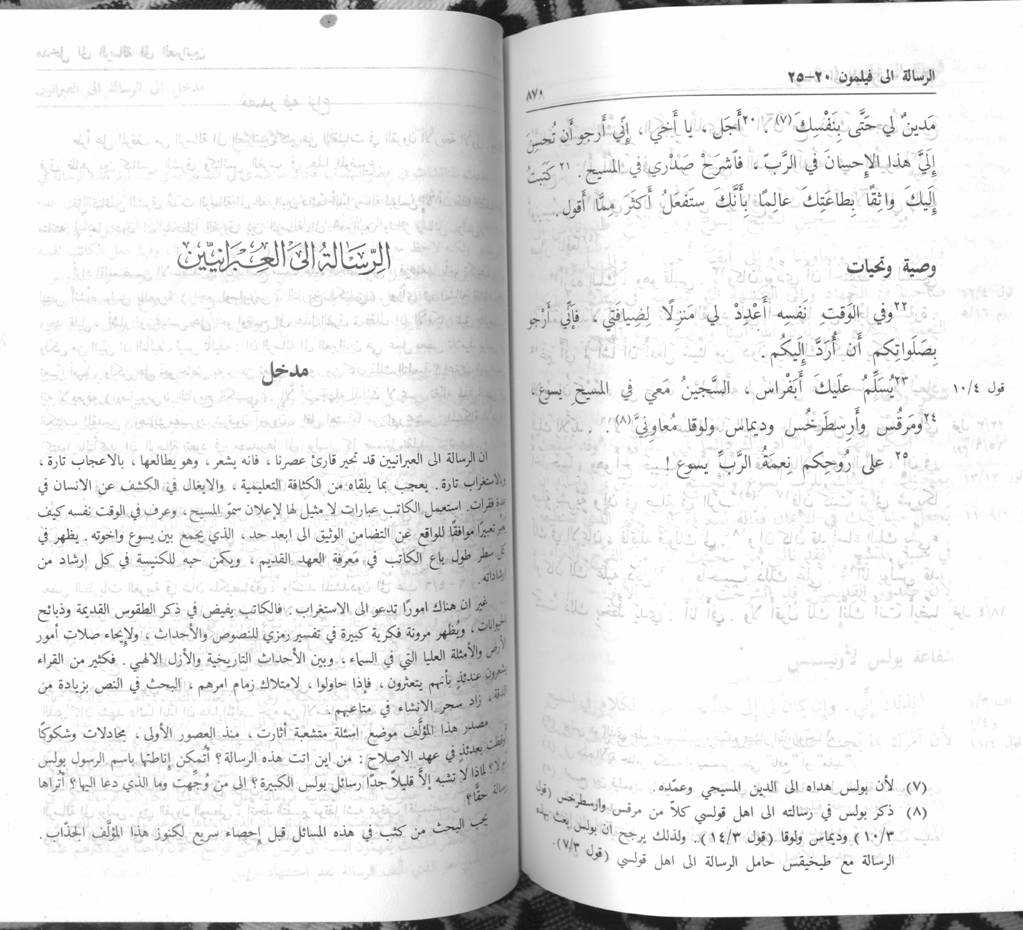 الرسالة الى فيلمون ٢٠-٢٥
٨٧٨
مَدينٌ لي حَتَّى بِنَفْسِكَ(٧). ٢٠أَجَل ، يا أَخي ، إِنِّي أَرجو أَن تُحسِنَ
إِلَيَّ هذا الإِحسانَ في الرَّبّ ، فَاشرَحْ صَدْري في المسيح . ٢١كَتَبتُ
إِلَيكَ واثِقًا بِطاعَتِكَ عالِمًا بِأَنَّكَ ستَفعَلُ أَكثَرَ مِمَّا أَقول.
وصية وتحيات
٢٢وفي الوَقتِ نَفْسِه أَعْدِدْ لي مَنزِلًا لِضِيافَتي ، فإِنِّي أَرجو
بِصَلَواتِكم أَن أُرَدَّ إِلَيكُم.
قول ١٠/٤
٢٣يُسَلِّمُ علَيكَ أَبَفْراس ، السَّجينُ مَعي في المسيحِ يسوع،
٢٤ومَرقُس وأَرِسطَرخُس وديماس ولوقا مُعاوِنيَّ(٨).
٢٥ على رُوحِكم نِعمَةُ الرَّبِّ يسوع!
(٧) لأن بولس هداه الى الدين المسيحي وعمّده.
(٨) ذكر بولس في رسالته الى اهل قولسي كلاً من مرقس وارسطرخس (قول
١٠/٣) وديماس ولوقا (قول ١٤/٣). ولذلك يرجح ان بولس بعث بهذه
الرسالة مع طيخيقس حامل الرسالة الى اهل قولسي (قول ٧/٣).
الرِسَالةُ الى العِبْرَانيّين
مدخل
ان الرسالة الى العبرانيين قد تحير قارئ عصرنا ، فانه يشعر ، وهو يطالعها ، بالاعجاب تارة ،
والاستغراب تارة. يعجب بما يلقاه من الكثافة التعليمية ، والايغال في الكشف عن الانسان في
عدة فقرات. استعمل الكاتب عبارات لا مثيل لها لإعلان سموّ المسيح، وعرف في الوقت نفسه كيف
يعبر تعبيرًا موافقًا للواقع عن التضامن الوثيق الى ابعد حد ، الذي يجمع بين يسوع واخوته. يظهر في
كل سطر طول باع الكاتب في معرفة العهد القديم ، ويكمن حبه للكنيسة في كل ارشاد من
ارشاداته.
غير ان هناك امورًا تدعو الى الاستغراب. فالكاتب يفيض في ذكر الطقوس القديمة وذبائح
الحيوانات ، ويُظهر مرونة فكرية كبيرة في تفسير رمزي للنصوص والأحداث ، ولإيحاء صلات أمور
الأرض والأمثلة العليا التي في السماء ، وبين الأحداث التاريخية والأزل الالهي. فكثير من القراء
يشعرون عندئذٍ بأنهم يتعثرون ، فإذا حاولوا ، لامتلاك زمام امرهم ، البحث في النص بزيادة من
الدقة ، زاد سحر الانشاء في متاعبهم.
مصدر هذا المؤلَّف موضع اسئلة متشعبة أثارت ، منذ العصور الأولى ، مجادلات وشكوكًا
بعدئذٍ في عهد الاصلاح: من اين اتت هذه الرسالة؟ أتُمكن إناطتها باسم الرسول بولس
ام لا؟ لماذا لا تشبه إلاَّ قليلاً جدًا رسائل بولس الكبيرة؟ الى من وُجِّهت وما الذي دعا اليها؟ أتُراها
رسالة حقًّا؟
يجب البحث من كثب في هذه المسائل قبل إحصاء سريع لكنوز هذا المؤلَّف الجذّاب.